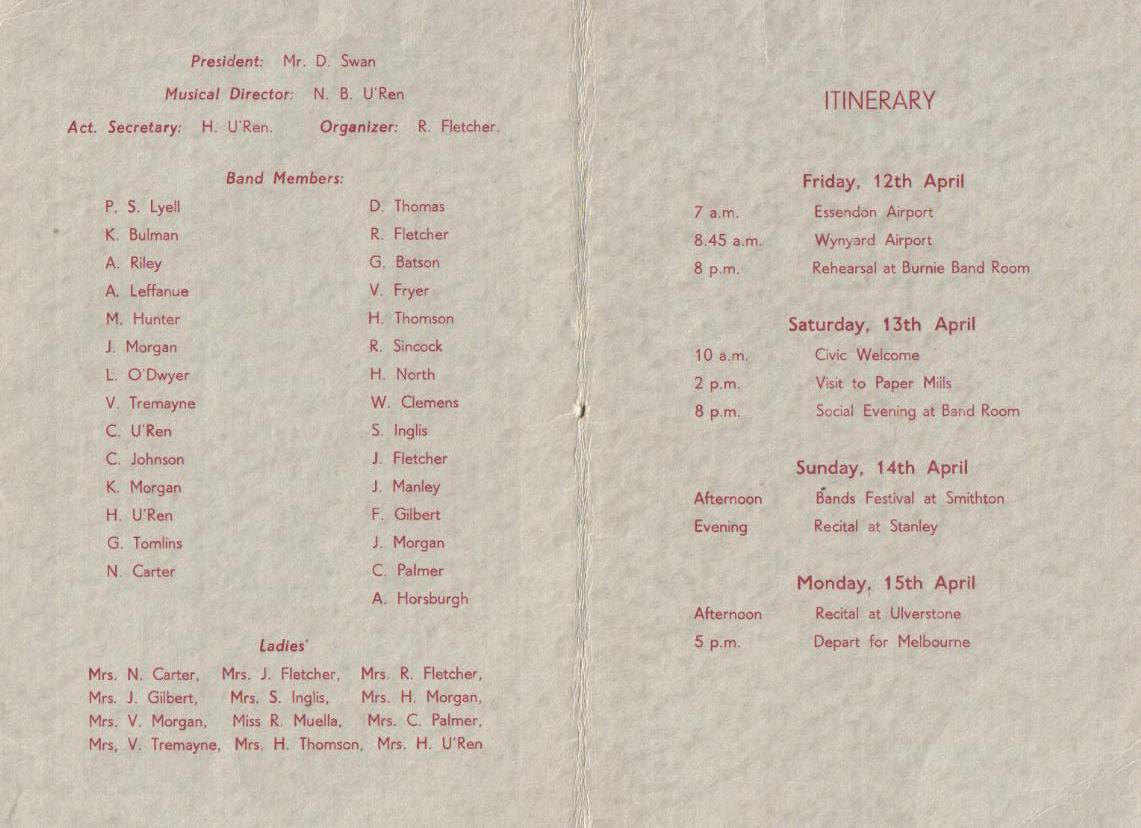 President: Mr. D. Swan
Musical Director: N. B. U'Ren
Act. Secretary: H. U'Ren. Organizer: R. Fletcher.
Band Members:
P. S. Lyell
K. Bulman
A. Riley
A. Leffanue
M. Hunter
J. Morgan
L. O'Dwyer
V. Tremayne
C. U'Ren
C. Johnson
K. Morgan
H. U'Ren
G. Tomlins
N. Carter
D. Thomas
R. Fletcher
G. Batson
V. Fryer
H. Thomson
R. Sincock
H. North
W. Clemens
S. Inglis
J. Fletcher
J. Manley
F. Gilbert
J. Morgan
C. Palmer
A. Horsburgh
Ladies'
Mrs. N. Carter, Mrs. J. Fletcher, Mrs. R. Fletcher,
Mrs. J. Gilbert, Mrs. S. Inglis, Mrs. H. Morgan,
Mrs. V. Morgan, Miss R. Muella, Mrs. C. Palmer,
Mrs, V. Tremayne, Mrs. H. Thomson, Mrs. H. U'Ren
ITINERARY
Friday, 12th April
7 a.m. Essendon Airport
8.45 a.m. Wynyard Airport
8 p.m. Rehearsal at Burnie Band Room
Saturday, 13th April
10 a.m. Civic Welcome
2 p.m. Visit to Paper Mills
8 p.m. Social Evening at Band Room
Sunday, 14th April
Afternoon Bands Festival at Smithton
Evening Recital at Stanley
Monday, 15th April
Afternoon Recital at Ulverstone
5 p.m. Depart for Melbourne